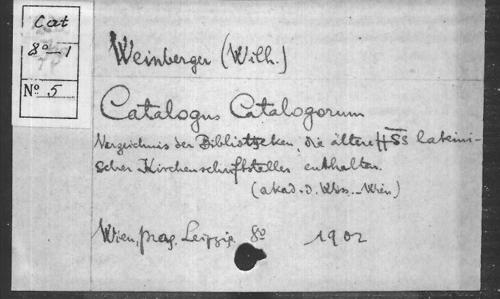 Cat
8º-1
Nº 5
Weinberger (Wilh.)
Catalogus Catalogorum
Verzeichnis der Bibliotheken, die ältere HSS lateini-
scher Kirchenschriftsteller enthalten.
(akad. d. Wiss. - Wien)
Wien, Prag, Leipzig. 8º 1902